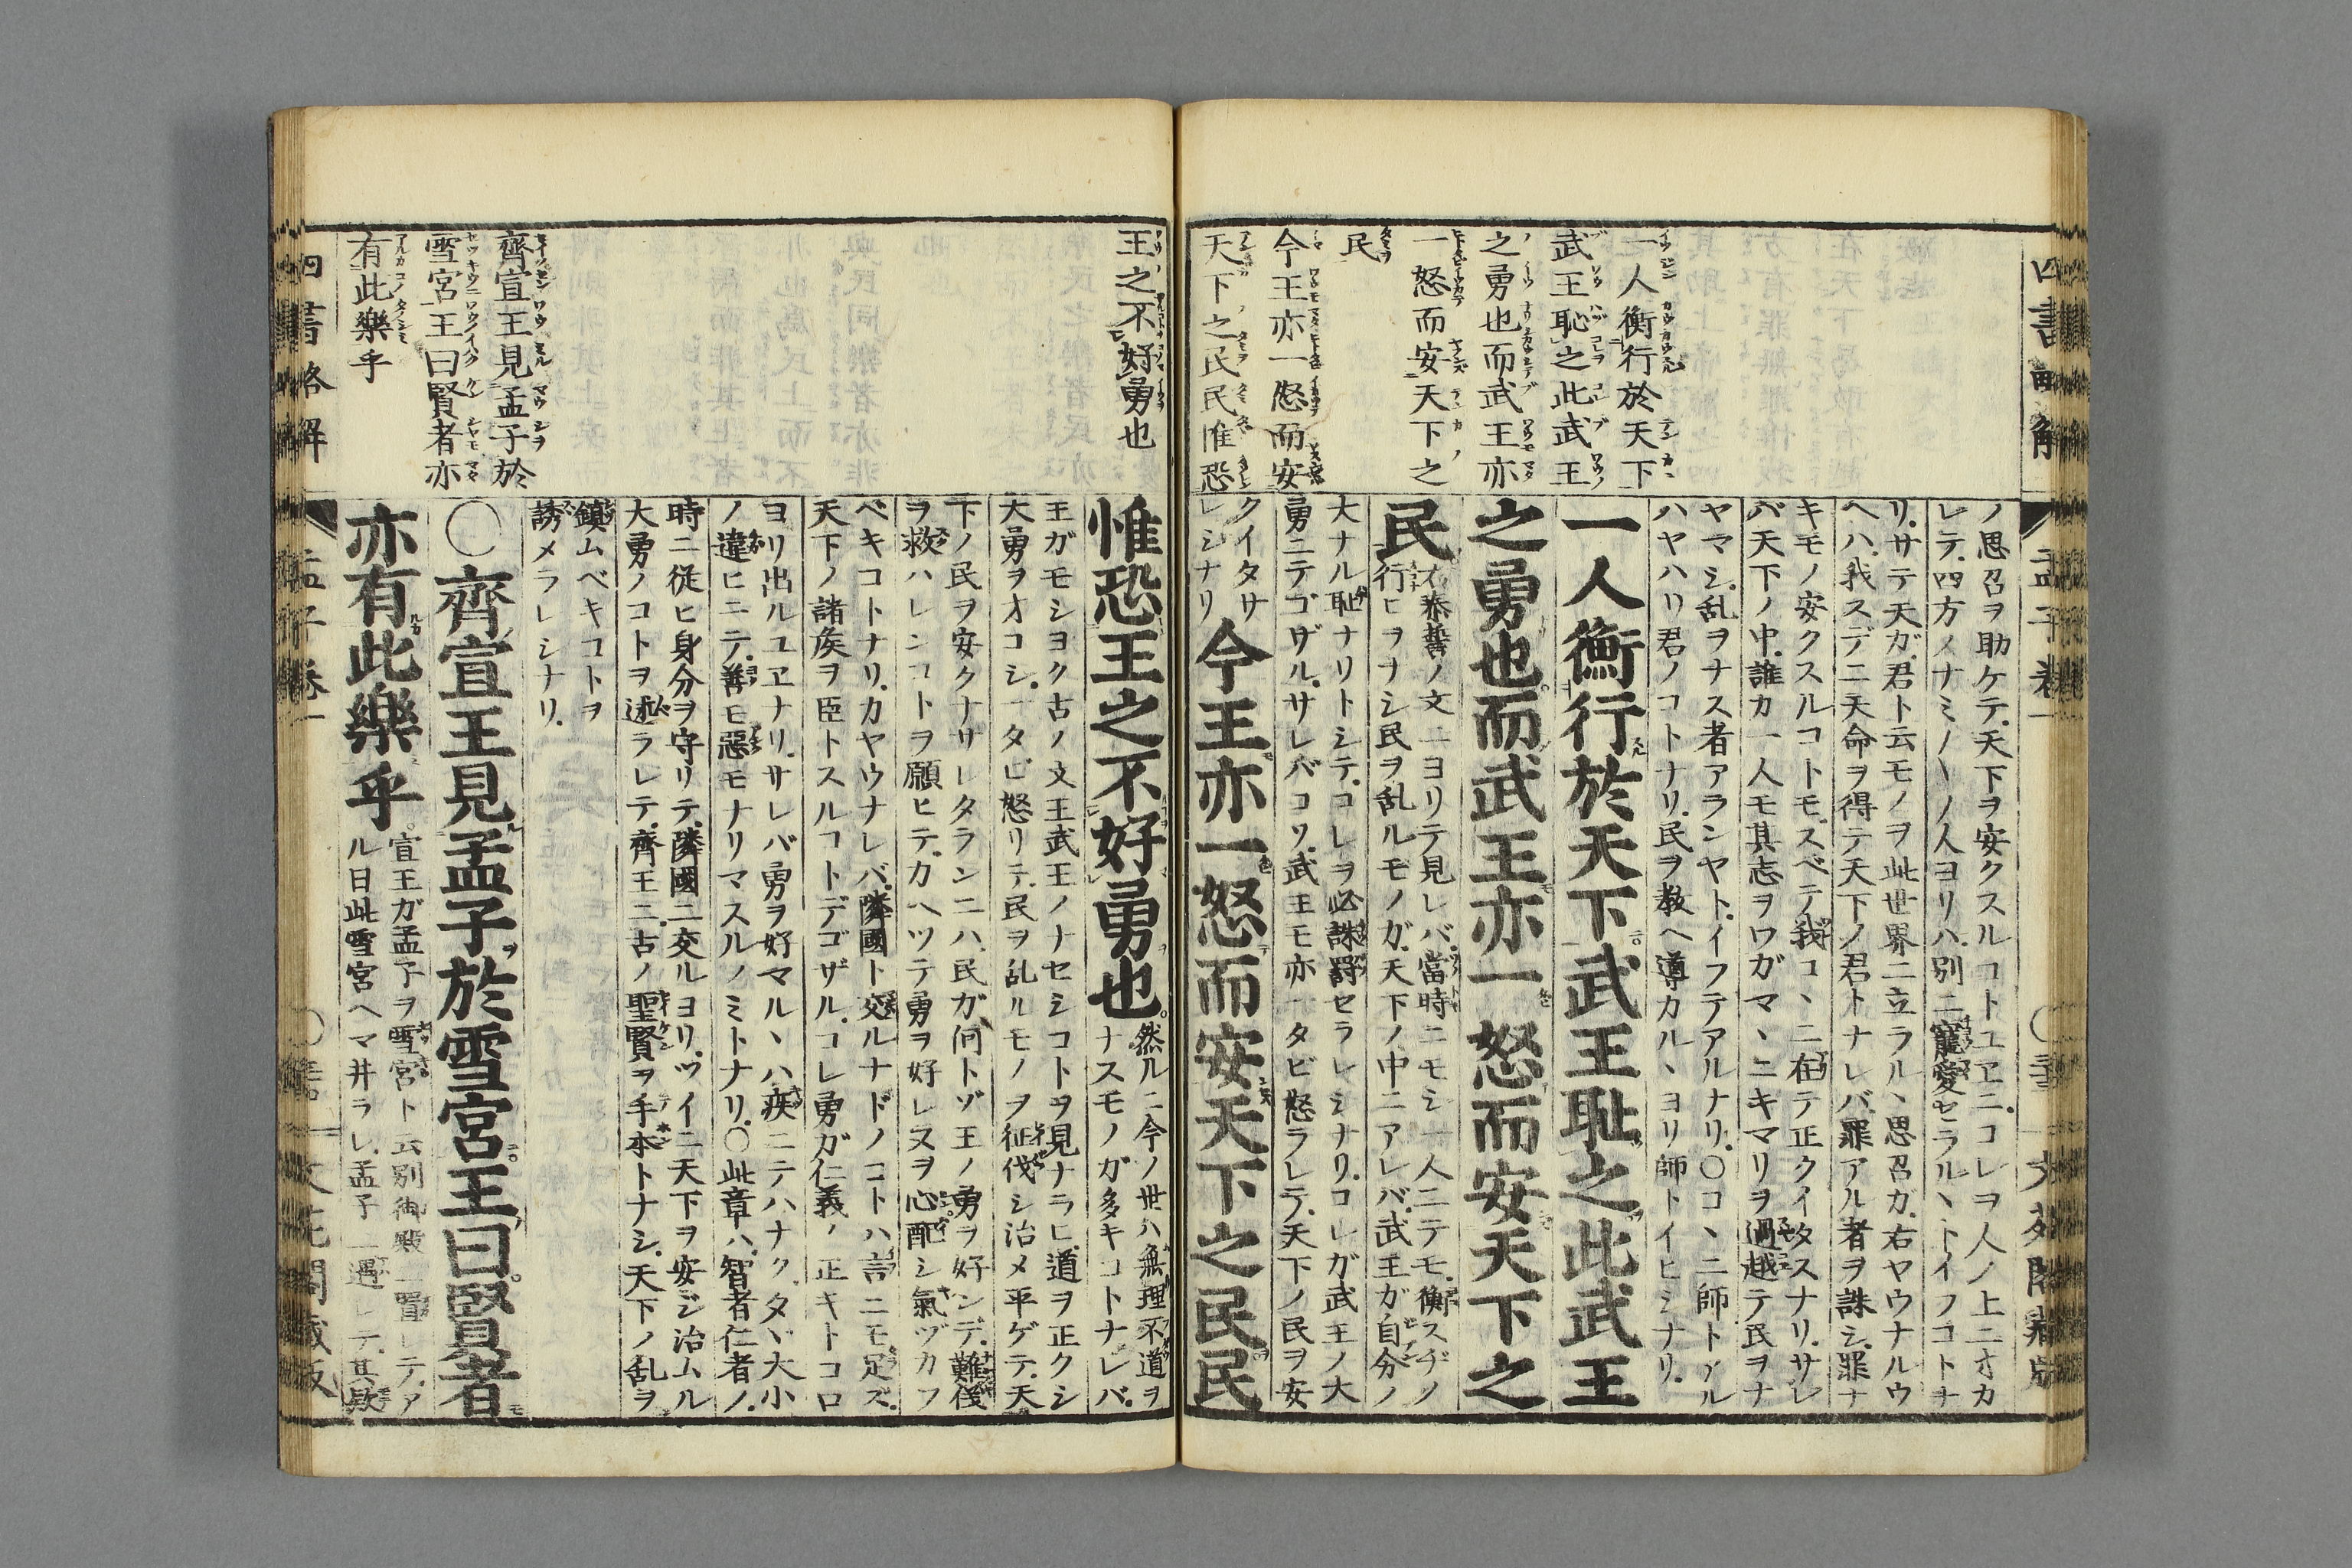 四書略解
一人衡行於天下
武王恥之此武王
之勇也而武王亦
一怒而安天下之
民
今王亦一怒而安
天下之民民惟恐
孟子卷一
ノ思召ヲ助ケテ天下ヲ安クスルコトユヱニコレヲ人ノ上ニオカ
レテ四方ノナミ〳〵ノ人ヨリハ別ニ寵愛セラルヽトイフコトナ
リサテ天ガ君ト云モノヲ此世界ニ立ラルヽ思召カ右ヤウナルウ
ヘハ我スデニ天命ヲ得テ天下ノ君トナレバ罪アル者ヲ誅シ罪ナ
キモノ安クスルコトモスベテ我コヽニ在テ正クイタスナリサレ
バ天下ノ中誰カ一人モ其志ヲワガマヽニキマリヲ過越テ民ヲナ
ヤマシ乱ヲナス者アランヤトイフテアルナリ〇コヽニ師トアル
ハヤハリ君ノコトナリ民ヲ教ヘ導カルヽヨリ師トイヒシナリ
一人衡行於天下武王耻之此武王
之勇也而武王亦一怒而安天下之
民
右泰誓ノ文ニヨリテ見レバ當時ニモシ一人ニテモ衡スヂノ
行ヒヲナシ民ヲ乱ルモノガ天下ノ中ニアレバ武王ガ自分ノ
大ナル恥ナリトシテコレヲ必誅罸セラレシナリコレガ武王ノ大
勇ニテゴザルサレバコソ武王モ亦一タビ怒ラレテ天下ノ民ヲ安
クイタサ
レシナリ
今王亦一怒而安天下之民民
王之不好勇也
齊宣王見孟子於
雪宮王曰賢者亦
有此樂乎
惟恐王之不好勇也
然ルニ今ノ世ハ無理不道ヲ
ナスモノガ多キコトナレバ
王ガモシヨク古ノ文王武王ノナセシコトヲ見ナラヒ道ヲ正クシ
大勇ヲオコシ一タビ怒リテ民ヲ乱ルモノヲ征伐シ治メ平ゲテ天
下ノ民ヲ安クナサレタランニハ民ガ何トゾ王ノ勇ヲ好ンデ難儀
ヲ救ハレンコトヲ願ヒテカヘツテ勇ヲ好レヌヲ心配シ氣ヅカフ
ベキコトナリカヤウナレバ隣國ト交ルナドノコトハ言ニモ足ズ
天下ノ諸矦ヲ臣トスルコトデゴザルコレ勇ガ仁義ノ正キトコロ
ヨリ出ルユヱナリサレバ勇ヲ好マルヽハ疾ニテハナクタヾ大小
ノ違ヒニテ善モ惡モナリマスルノミトナリ〇此章ハ智者仁者ノ
時ニ從ヒ身分ヲ守リテ隣國ニ交ルヨリツイニ天下ヲ安ジ治ムル
大勇ノコトヲ述ラレテ齊王ニ古ノ聖賢ヲ手本トナシ天下ノ乱ヲ
鎮ムベキコトヲ
誘メラレシナリ
〇齊宣王見孟子於雪宮王曰賢者
亦有此樂乎
宣王ガ孟子ヲ雪宮ト云別御殿ニ置レテア
ル日此雪宮ヘマ井ラレ孟子ニ遇レテ其歟
四書略解
孟子卷一
文花閣蔵版